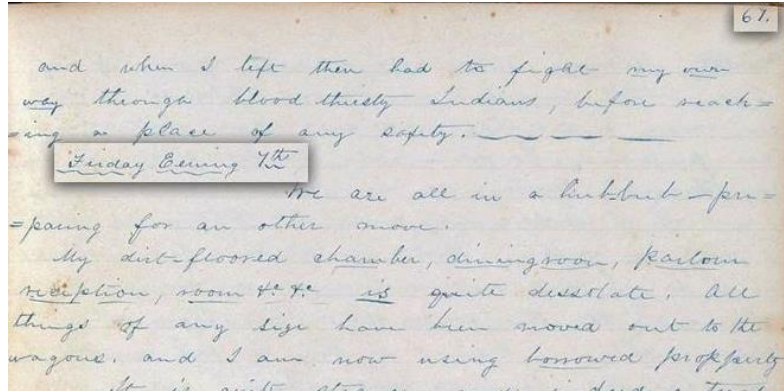 67.
and when I left then had to fight my own
way through blood thirsty Indians, before reach=
=ing a place of any safety.
Friday Evening 7th
We are all in a hub-bub — pre=
=paring for an other move.
My dirt-floored chamber, diningroom, parlour
reception, room &c &c is quite dessolate. All
things of any size have been moved out to the
wagons. and I am now using borrowed propperty
It is quite